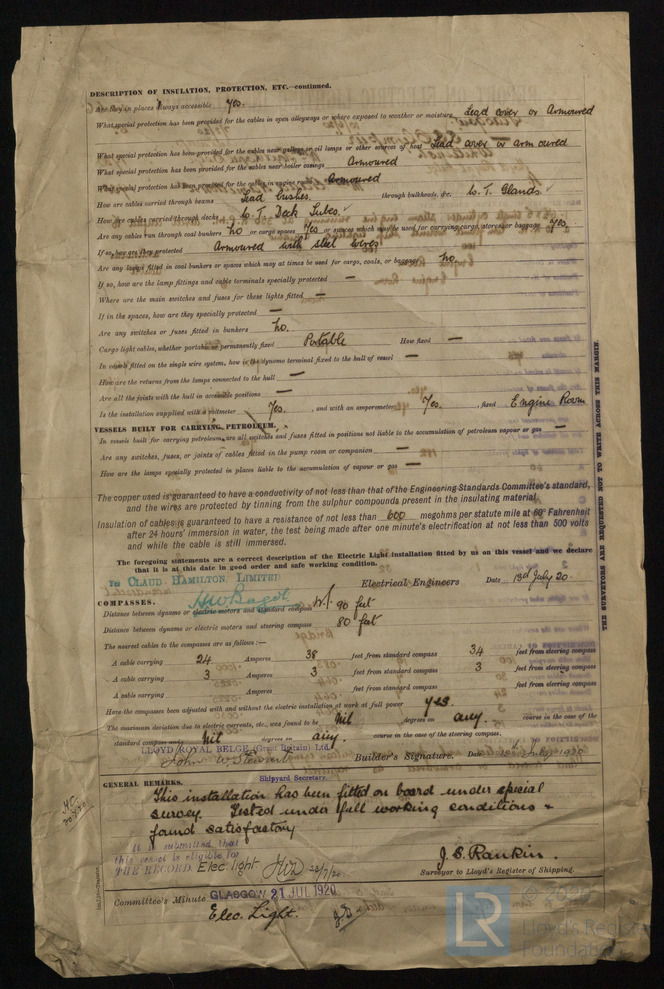 DESCRIPTION OF INSULATION, PROTECTION, ETC.—continued.
Are they in places always accessible Yes.
What special protection has been provided for the cables in open alleyways or where exposed to weather or moisture Lead cover or Armoured
What special protection has been provided for the cables near galleys or oil lamps or other sources of heat Lead cover or armoured
What special protection has been provided for the cables near boiler casings Armoured
What special protection has been provided for the cables in engine room Armoured
How are cables carried through beams Lead bushes. through bulkheads, &c. W.T. Glands ✓
How are cables carried through decks W.T. Deck Tubes. ✓
Are any cables run through coal bunkers no or cargo spaces Yes or spaces which may be used for carrying cargo, stores, or baggage yes
If so, how are they protected Armoured with steel wires
Are any lamps fitted in coal bunkers or spaces which may at times be used for cargo, coals, or baggage no.
If so, how are the lamp fittings and cable terminals specially protected —
Where are the main switches and fuses for these lights fitted —
If in the spaces, how are they specially protected —
Are any switches or fuses fitted in bunkers no.
Cargo light cables, whether portable or permanently fixed Portable How fixed —
In vessels fitted on the single wire system, how is the dynamo terminal fixed to the hull of vessel —
How are the returns from the lamps connected to the hull —
Are all the joints with the hull in accessible positions —
Is the installation supplied with a voltmeter Yes. , and with an amperemeter Yes. , fixed Engine Room
VESSELS BUILT FOR CARRYING PETROLEUM.
In vessels built for carrying petroleum, are all switches and fuses fitted in positions not liable to the accumulation of petroleum vapour or gas —
Are any switches, fuses, or joints of cables fitted in the pump room or companion —
How are the lamps specially protected in places liable to the accumulation of vapour or gas —
The copper used is guaranteed to have a conductivity of not less than that of the Engineering Standards Committee's standard,
and the wires are protected by tinning from the sulphur compounds present in the insulating material.
Insulation of cables is guaranteed to have a resistance of not less than 600 megohms per statute mile at 60° Fahrenheit
after 24 hours' immersion in water, the test being made after one minute's electrification at not less than 500 volts
and while the cable is still immersed.
The foregoing statements are a correct description of the Electric Light installation fitted by us on this vessel and we declare
that it is at this date in good order and safe working condition.
CLAUD HAMILTON LIMITED
Electrical Engineers Date 13th July 20.
COMPASSES.
Distance between dynamo or electric motors and standard compass 90 feet
Distance between dynamo or electric motors and steering compass 80 feet
The nearest cables to the compasses are as follows:—
A cable carrying 24 Amperes 38 feet from standard compass 34 feet from steering compass
A cable carrying 3 Amperes 3 feet from standard compass 3 feet from steering compass
A cable carrying Amperes feet from standard compass feet from steering compass
Have the compasses been adjusted with and without the electric installation at work at full power Yes
The maximum deviation due to electric currents, etc., was found to be Nil degrees on any course in the case of the
standard compass and Nil degrees on any course in the case of the steering compass.
LLOYD ROYAL BELGE (Great Britain) Ltd
John W Stewart Builder's Signature. Date July 1920
Shipyard Secretary.
GENERAL REMARKS.
This installation has been fitted on board under special
survey. Tested under full working conditions &
found satisfactory
It is submitted that
this vessel is eligible for
THE RECORD. Elec light
J. S. Rankin.
Surveyor to Lloyd's Register of Shipping.
Committee's Minute GLASGOW 21 JUL 1920
Elec. Light.
THE SURVEYORS ARE REQUESTED NOT TO WRITE ACROSS THIS MARGIN.
LR
Lloyd's Register
Foundation